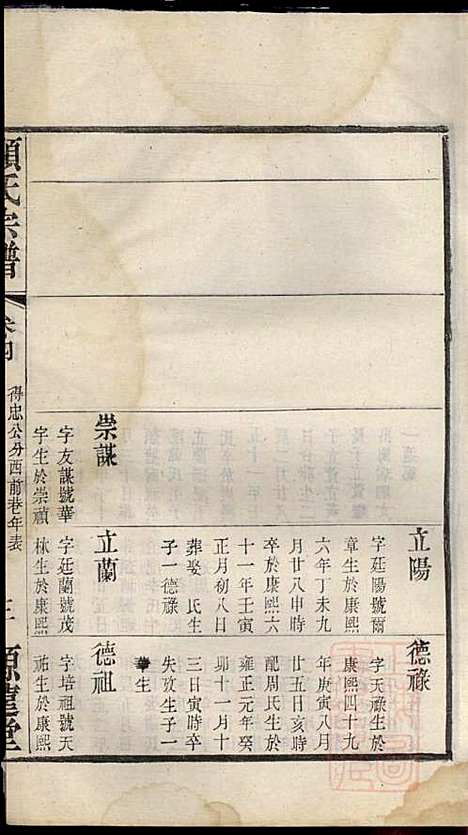 立陽
字廷陽號爾
章生於康熙
六年丁未九
月廿八申時
卒於康熙六
十一年壬寅
正月初八日
葬娶 氏生
子一德祿
立蘭
字廷蘭號茂
林生於康熙
德祿
字天祿生於
康熙四十九
年庚寅八月
廿五日亥時
配周氏生於
雍正元年癸
卯十一月十
三日寅時卒
失攷生子一
華生
德祖
字培祖號天
祐生於康熙
崇謀
字友謀號華
字生於崇禎
顧氏宗譜
卷四
得忠公分西前巷年表
三
源遠堂